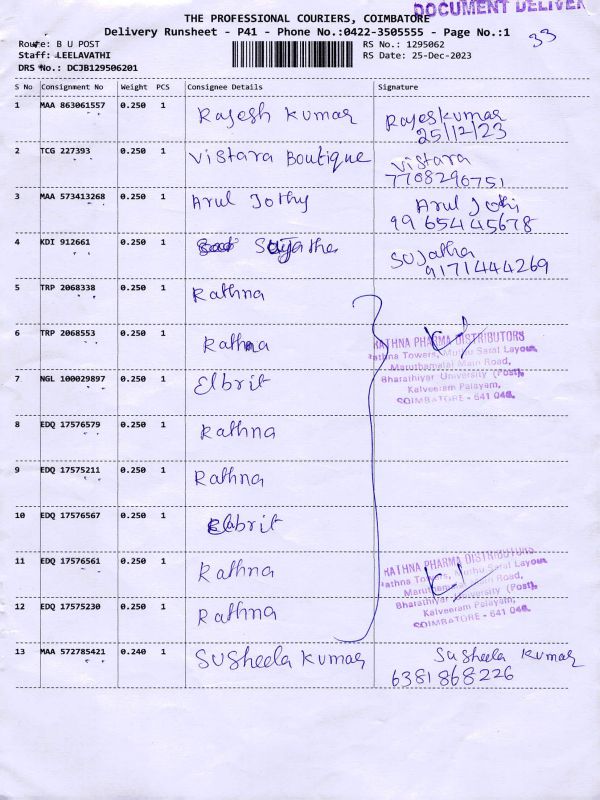 DOCUMENT DELIVER
THE PROFESSIONAL COURIERS, COIMBATORE
Delivery Runsheet - P41 - Phone No.:0422-3505555 - Page No.:1
33
Route: B U POST
RS No.: 1295062
Staff: LEELAVATHI
RS Date: 25-Dec-2023
DRS No.: DCJB129506201
S No Consignment No Weight PCS Consignee Details Signature
1 MAA 863061557 0.250 1 Rajesh Kumar Rajeskumar
25/12/23
2 TCG 227393 0.250 1 Vistara Boutique Vistara
7708290751
3 MAA 573413268 0.250 1 Arul Jothy Arul Jothi
99 654 45678
4 KDI 912661 0.250 1 Sujatha Sujatha
9171444269
5 TRP 2068338 0.250 1 Rathna
6 TRP 2068553 0.250 1 Rathna
RATHNA PHARMA DISTRIBUTORS
Rathna Towers, Muthu Sarat Layout,
Maruthamalai Main Road,
Bharathiyar University (Post),
Kalveeram Palayam,
COIMBATORE - 641 046.
7 NGL 100029897 0.250 1 Elbrit
8 EDQ 17576579 0.250 1 Rathna
9 EDQ 17575211 0.250 1 Rathna
10 EDQ 17576567 0.250 1 Elbrit
11 EDQ 17576561 0.250 1 Rathna
RATHNA PHARMA DISTRIBUTORS
Rathna Towers, Muthu Sarat Layout
Maruthamalai Main Road,
Bharathiyar University (Post),
Kalveeram Palayam,
COIMBATORE - 641 046.
12 EDQ 17575230 0.250 1 Rathna
13 MAA 572785421 0.240 1 Susheela Kumar Susheela Kumar
6381868226